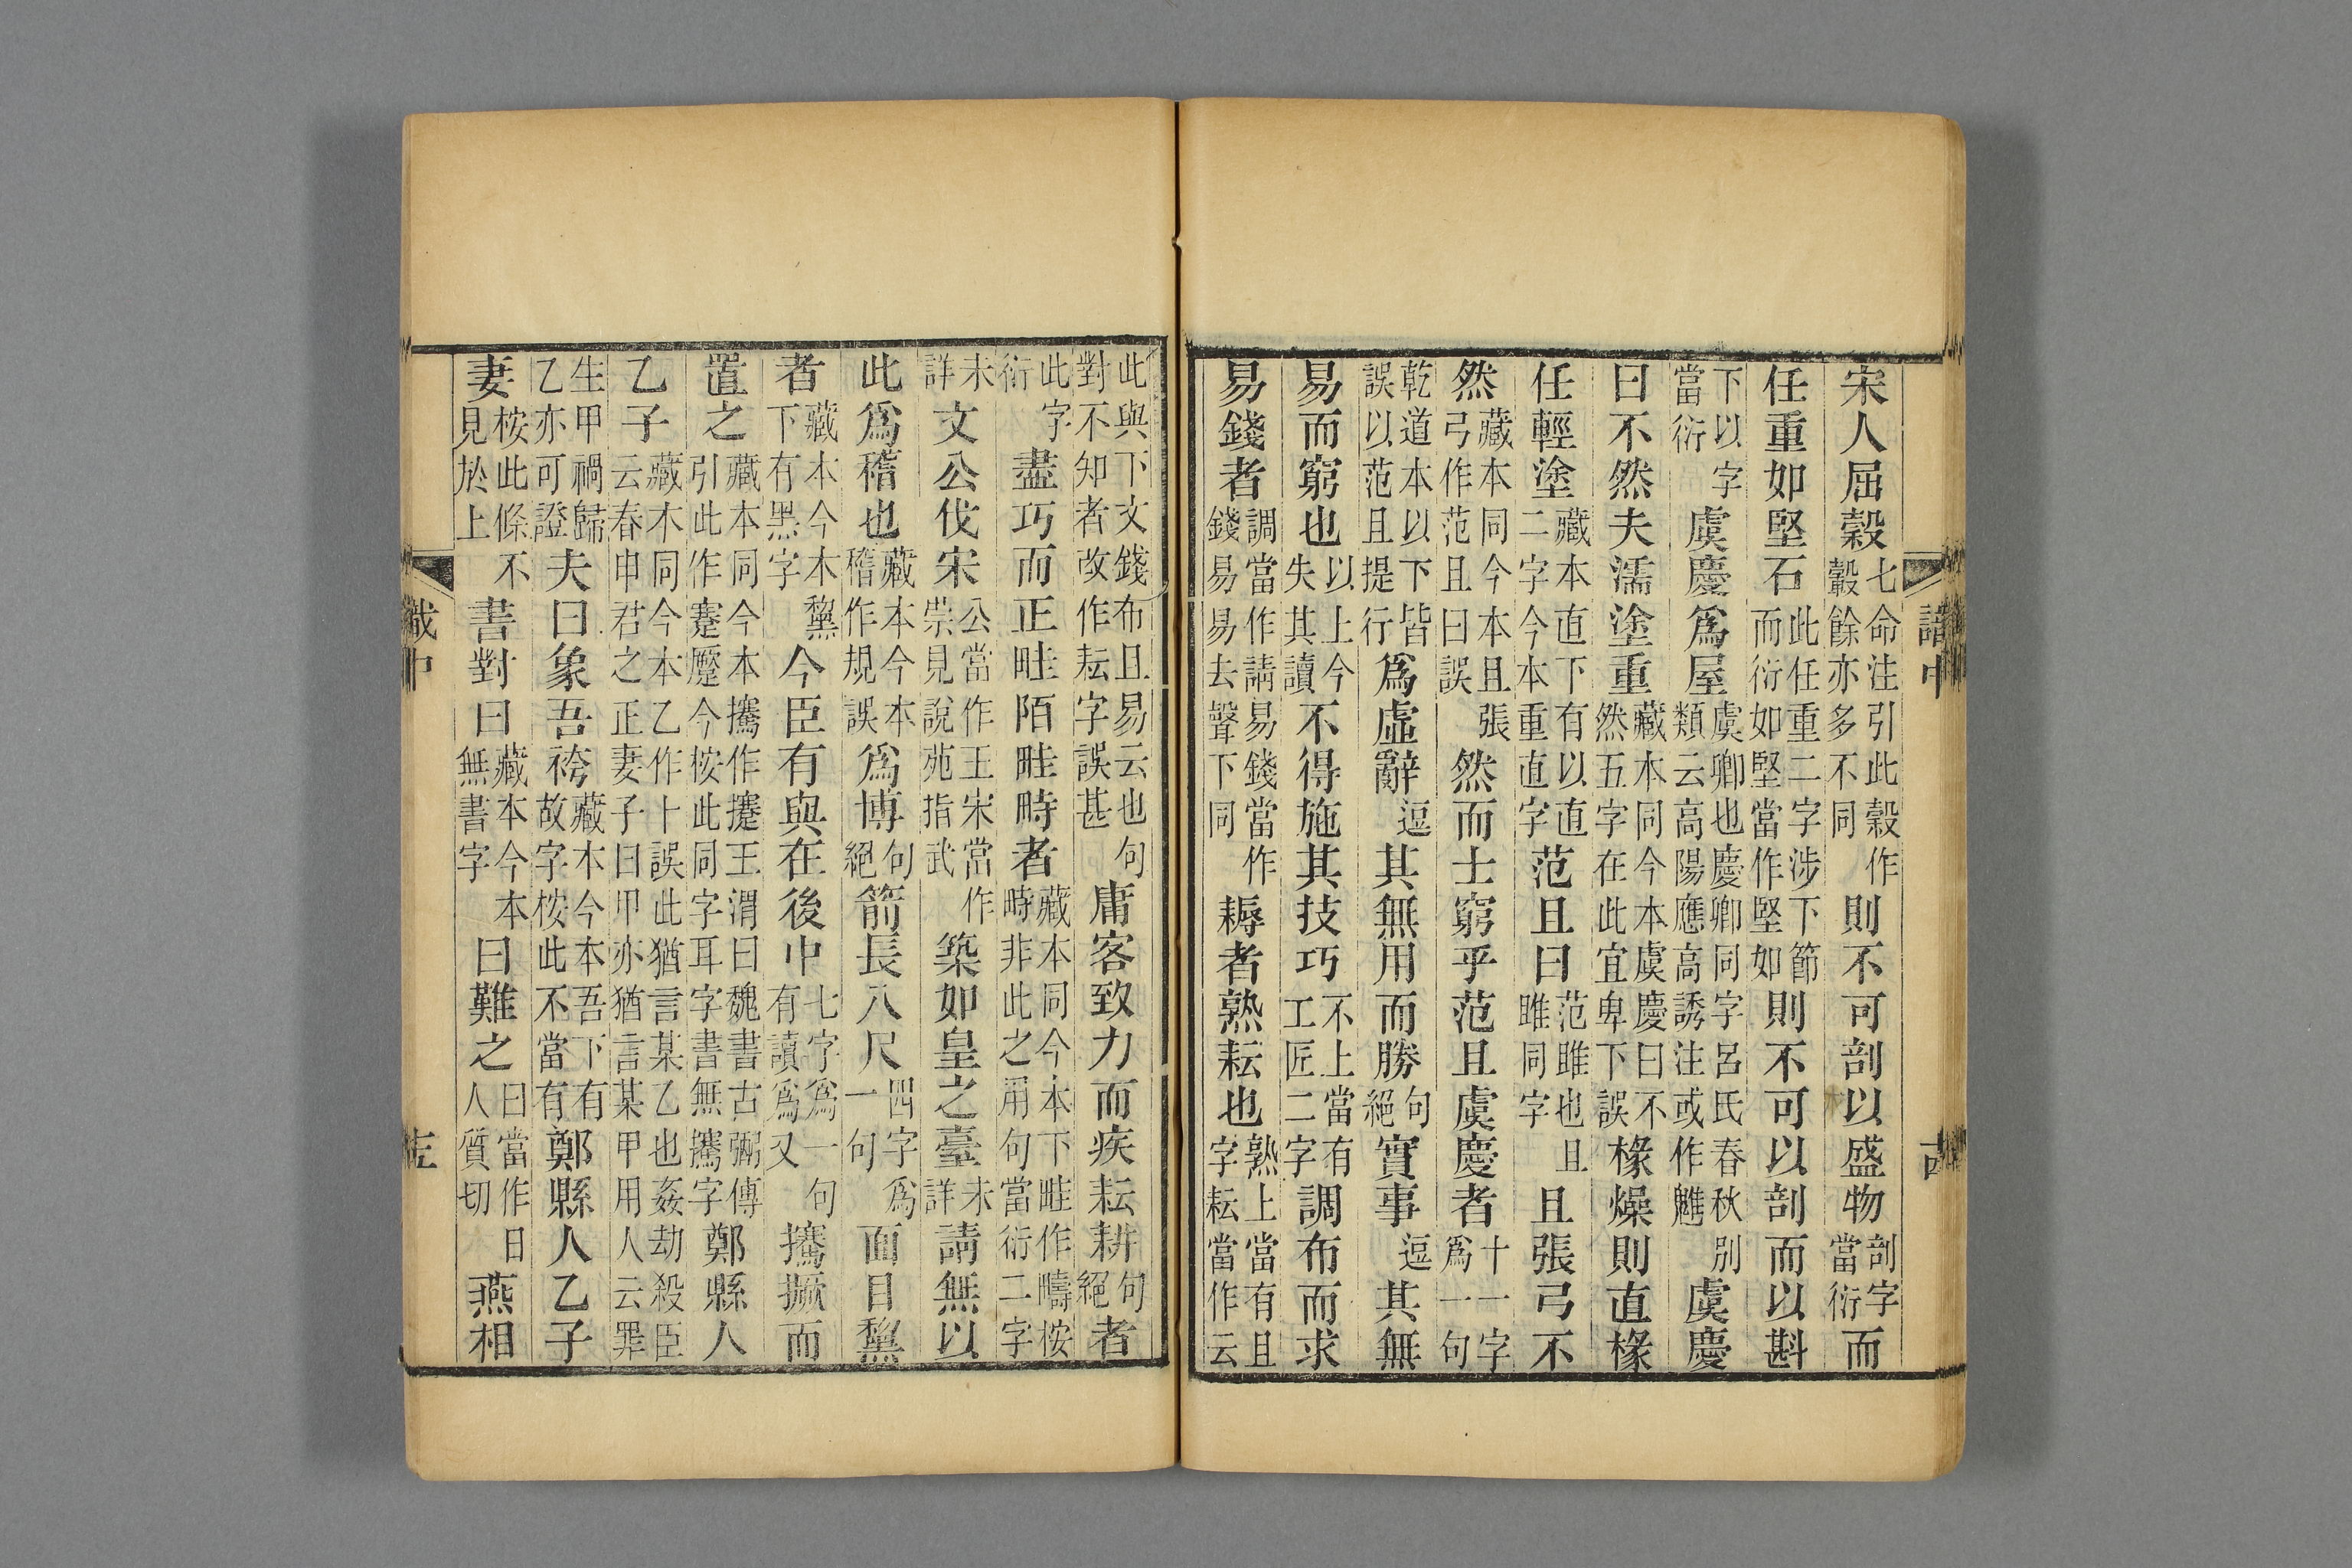 宋人屈穀七命注引此穀作轂餘亦多不同則不可剖以盛物剖字當衍而
任重如堅石此任重二字涉下節而衍如堅當作堅如則不可以剖而以斟
下以字當衍虞慶爲屋虞卿也慶卿同字呂氏春秋別類云高陽應高誘注或作魋虞慶
曰不然夫濡塗重藏本同今本虞慶曰不然五字在此宜卑下誤椽燥則直椽
任輕塗藏本直下有以直二字今本重直字范且曰范雎也且雎同字且張弓不
然藏本同今本且張弓作范且曰誤然而士窮乎范且虞慶者十一字爲一句
乾道本以下皆誤以范且提行爲虛辭逗其無用而勝句絕實事逗其無
易而窮也以上今失其讀不得施其技巧不上當有工匠二字調布而求
易錢者調當作請易錢當作錢易易去聲下同耨者熟耘也熟上當有且字耘當作云
此與下文錢布且易云也句對不知者改作耘字誤甚庸客致力而疾耘耕句絕者
此字衍盡巧而正畦陌畦畤者藏本同今本下畦作疇按時非此之用句當衍二字
未詳文公伐宋公當作王宋當作崇見說苑指武築如皇之臺未詳請無以
此爲稽也藏本今本稽作規誤爲博句絕箭長八尺四字爲一句面目黧
者藏本今本黧下有黑字今臣有與在後中七字爲一句有讀爲又攓撅而
置之藏本同今本攓作搴王渭曰魏書古弼傳引此作蹇蹷今按此同字耳字書無攓字鄭縣人
乙子藏本同今本乙作卜誤此猶言某乙也姦劫殺臣云春申君之正妻子曰甲亦猶言某甲用人云罪
生甲禍歸乙亦可證夫曰象吾袴藏本今本吾下有故字按此不當有鄭縣人乙子
妻按此條不見於上書對曰藏本今本無書字曰難之曰當作日人質切燕相